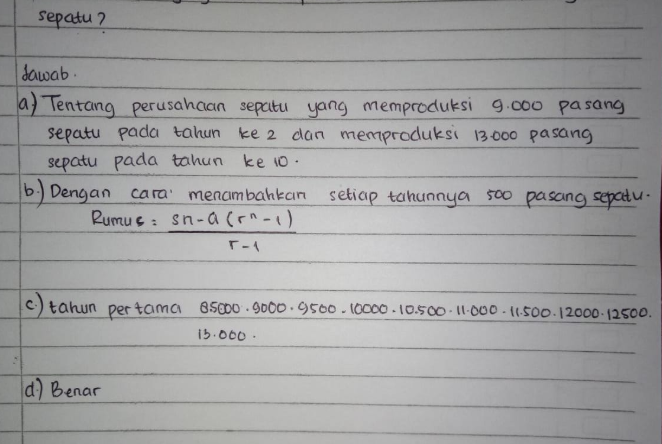 sepatu?
Jawab.
a) Tentang perusahaan sepatu yang memproduksi 9.000 pasang
sepatu pada tahun ke 2 dan memproduksi 13.000 pasang
sepatu pada tahun ke 10.
b.) Dengan cara menambahkan setiap tahunnya 500 pasang sepatu.
Rumus = sn-a (rⁿ-1)
r-1
c.) tahun pertama 85000.9000.9500.10000.10.500.11.000.11.500.12000.12500.
13.000.
d.) Benar